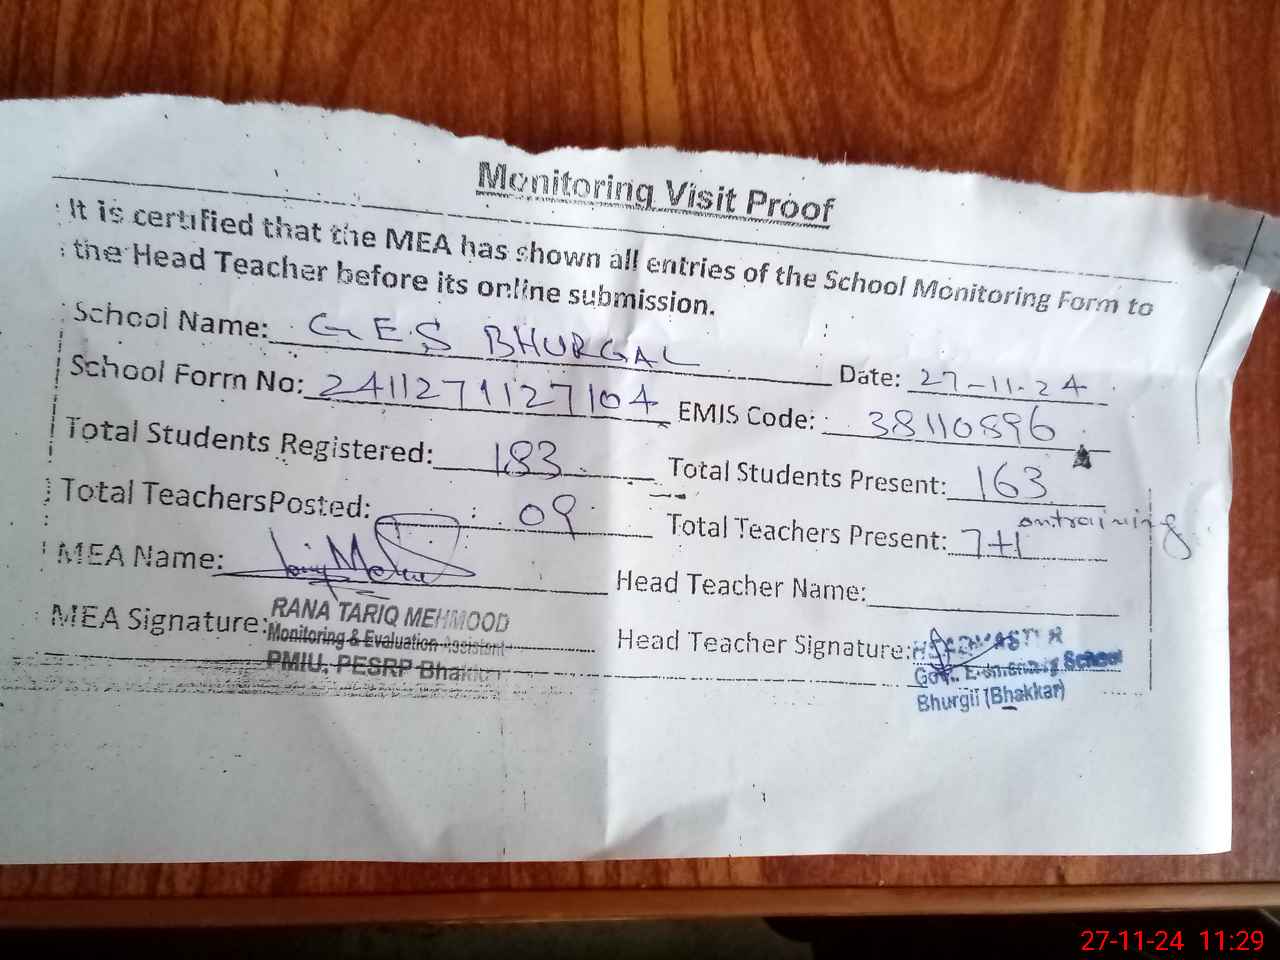 Monitoring Visit Proof
It is certified that the MEA has shown all entries of the School Monitoring Form to
the Head Teacher before its online submission.
School Name: G.E.S BHURGAL Date: 27-11-24
School Form No: 2411271127104 EMIS Code: 38110896
Total Students Registered: 183 Total Students Present: 163
Total TeachersPosted: 09 Total Teachers Present: 7+1 ontraining
MEA Name: Head Teacher Name:
MEA Signature: Head Teacher Signature:
RANA TARIQ MEHMOOD
Monitoring & Evaluation Assistant
PMIU, PESRP Bhakkar
HEADMASTER
Govt. Elementary School
Bhurgil (Bhakkar)
27-11-24 11:29